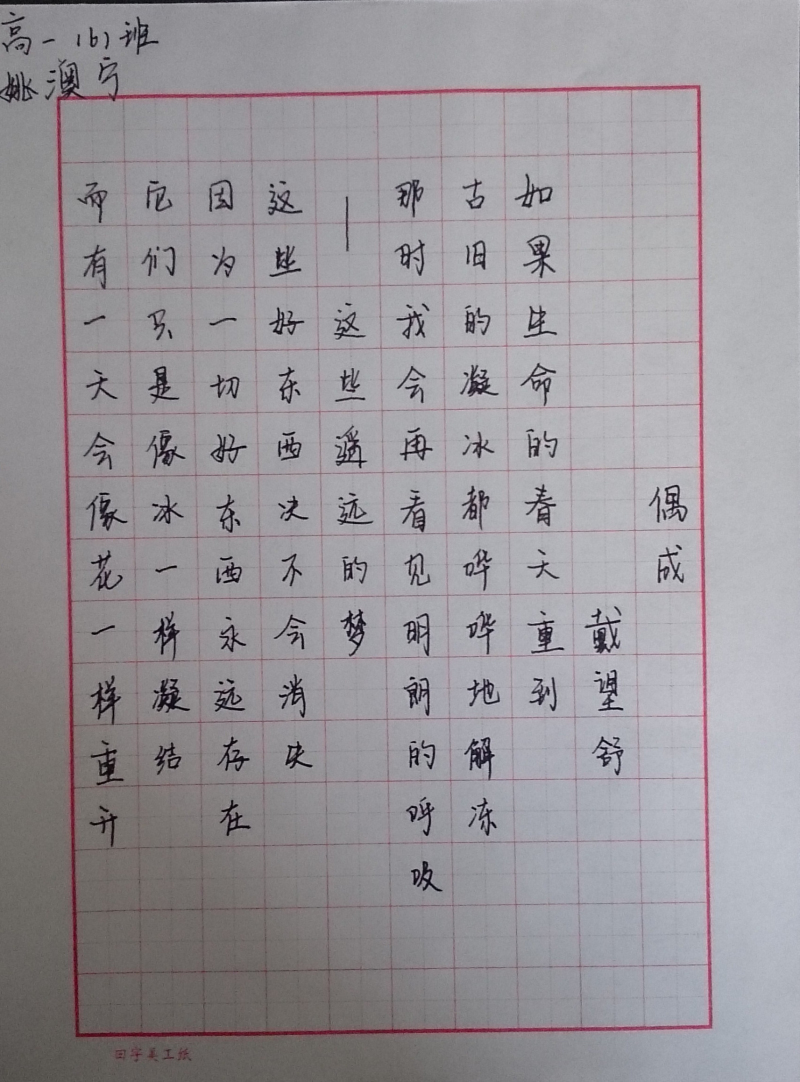 高一(6)班
姚澳宁
偶成
戴望舒
如果生命的春天重到
古旧的凝冰都哗哗地解冻
那时我会再看见明朗的呼吸
——这些遥远的梦
这些好东西决不会消失
因为一切好东西永远存在
它们只是像冰一样凝结
而有一天会像花一样重开
田字美工纸